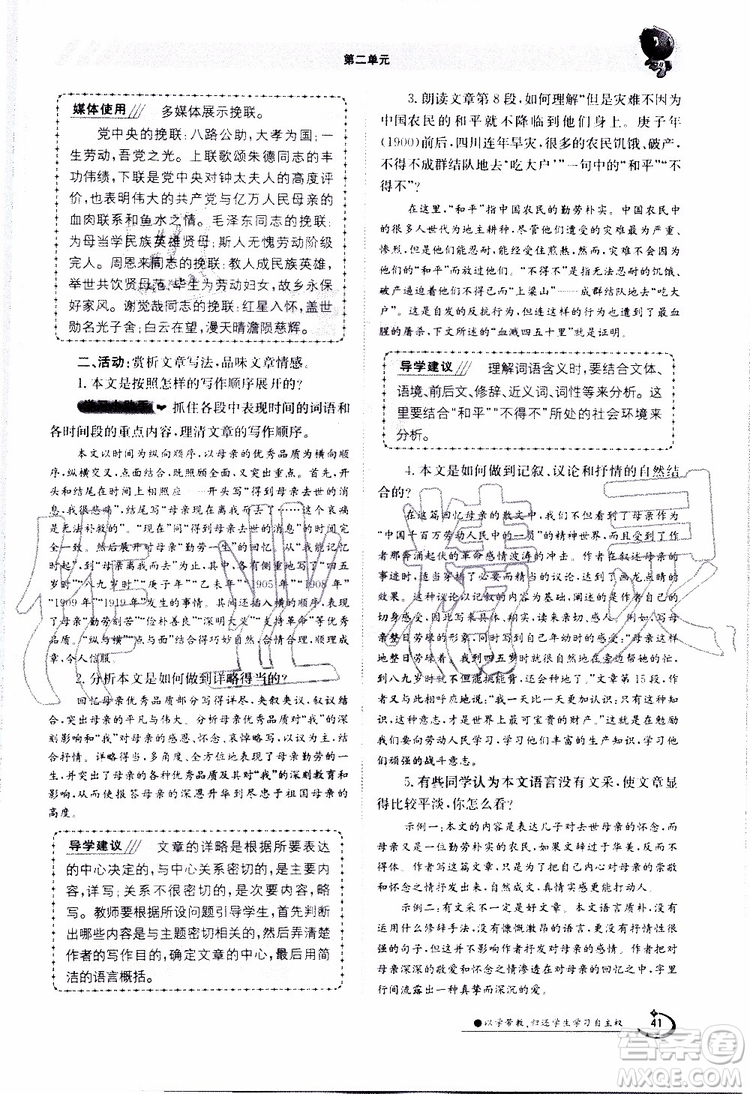 第二单元
媒体使用 多媒体展示挽联。
党中央的挽联：八路公助，大孝为国；一
生劳动，吾党之光。上联歌颂朱德同志的丰
功伟绩，下联是党中央对钟太夫人的高度评
价，也展示了共产党与亿万人民母亲的
血肉联系和鱼水之情。毛泽东同志的挽联：
为母当学民族英雄贤母；斯人无愧劳动阶级
完人。周恩来同志的挽联：教人成民族英雄，
举世共钦贤母范；毕生为劳动妇女，故乡永保
好家风。谢觉哉同志的挽联：红星入怀，盖世
勋名光子舍；白云在望，漫天晴澹陨慈辉。
二、活动：赏析文章写法，品味文章情感。
1. 本文是按照怎样的写作顺序展开的？
抓住各段中表现时间的词语和
各时间段的重点内容，理清文章的写作顺序。
本文以时间为纵向顺序，以母亲的优秀品质为横向顺序，
纵横交叉，点面结合，达到纵横交错、点面结合的表达效果。
开头和结尾在时间上相呼应，开头写“得到母亲去世的消息”，
结尾写“母亲现在离我而去了，我将永不能再见她一面了，这个哀痛
是无法补救的”。“现在”同“得到母亲去世的消息”的时间完
全一致。然后展开对母亲“勤劳一生”的回忆（从“我能记
时起”，当然也有“我”出生前母亲的事迹），依次写了“四五
岁时”“八九岁时”“庚子年”“乙未年”“1905 年”“1908 年”
“1909 年”“1919 年”发生的事情。其间还插入横向内容，表现
了母亲“勤劳刻苦”“俭朴善良”“深明大义”“支持革命”等
优秀品质。“纵与横”“点与面”结合得巧妙自然，合情合理，
令人信服。
2. 分析本文是如何做到详略得当的？
回忆母亲优秀品质部分写得详尽，夹叙夹议，叙议结
合，突出母亲的平凡与伟大。分析母亲优秀品质对“我”的深
刻影响和“我”对母亲的感恩、怀念、哀悼略写，以议为主，结
合抒情。详略得当，多角度、全方位地突出了母亲勤劳的一
生，并能将母亲的优秀品质与母亲对“我”的深刻教育和影响
融为一体，将作者对母亲的深恩升华到革命事业，思想深
刻，主题突出。
导学建议 文章的详略是有要表达
的中心决定的，与中心关系密切的，是主要内
容，详写；关系不很密切的，是次要内容，略
写。教师要根据所设问题引导学生，首先判断
出哪些是详写的，哪些是略写的，然后弄清楚
作者的写作目的，确定文章的中心，用最简
洁的语言概括。
3. 朗读文章第 8 段，如何理解“但是灾难不因为
中国农民的和平就不降临到他们身上。庚子年
（1900）前后，四川连年旱灾，很多的农民饥饿、破产，
不得不成群结队地去‘吃大户’”一句中的“和平”“不
得不”？
在这里，“和平”指中国农民的勤劳朴实。中国农民中
的很多人世代为地主耕田，尽管他们遭受的灾难最为严重、
惨烈，但他们能忍耐，能经受住煎熬。然而，灾难并不因为
他们的“和平”就不降临。“不得不”是指无法忍已的饥饿、
破产逼迫他们集体“上梁山”——成群结队地去“吃大
户”。这是自发的反抗行为，但连这样的行为也遭到了最血
腥的屠杀，下文所述的“血溅四五十里”就是明证。
导学建议 理解词语含义时，要结合文体、
语境、前后文、修辞、近义词、词性等来分析。这
里要结合“和平”“不得不”所处的社会环境来
分析。
4. 本文是如何做到记叙、议论和抒情的自然结
合的？
在这篇回忆母亲的散文中，我们时时感受到一位作为
“中国千百万劳动人民中的一员”的精神世界，以及听到作
者那奔涌起伏的情感波涛的冲击。作者在叙述母亲的
事迹时，适当穿插了一些议论和抒情，达到了画龙点睛的表
达效果。议论和抒情都以记叙的内容为基础，阐述的道理有
切身感受，因此深具体、真实，读来亲切、感人。如，写母
亲整日劳碌的形象，写到了年幼时的感受：“母亲这样地
整日劳碌着。我到四五岁时就很自然地在旁边帮她的忙，
到八九岁时就不但能挑能背，还会种地了。”文章第 15 段，
作者对此呼应地说：“我一天比一天更加认识：只有这种
知识，这种意志，是世界上最可宝贵的财产。”这样写是要
我们向劳动人民学习，学习他们丰富的生产知识，学习他们
顽强的战斗意志。
5. 有些同学认为本文语言没有文采，使文章显
得比较平淡，你怎么看？
示例一：本文的内容是表达儿子对去世母亲的怀念，
而母亲又是一位勤劳朴实的农民，如果文辞过于华美，倒显
得不得体。作者写得朴素自然，把自己内心对母亲的崇敬
和怀念之情表达得真挚而感人，使读者更加感动。
示例二：有文采不一定是好文章。本文语言质朴，没有
运用什么修辞手法，也没有慷慨激昂的语言，没有激情性很
强的句子，但这种平平淡淡的叙写更能打动人。作者将对
母亲深深的敬爱和怀念之情渗透在对母亲的回忆之中，字里
行间流露出一种真挚而深沉的爱。
●以学带教，归还学生学习自主权 41
作业精灵
答案圈
MXQE.COM